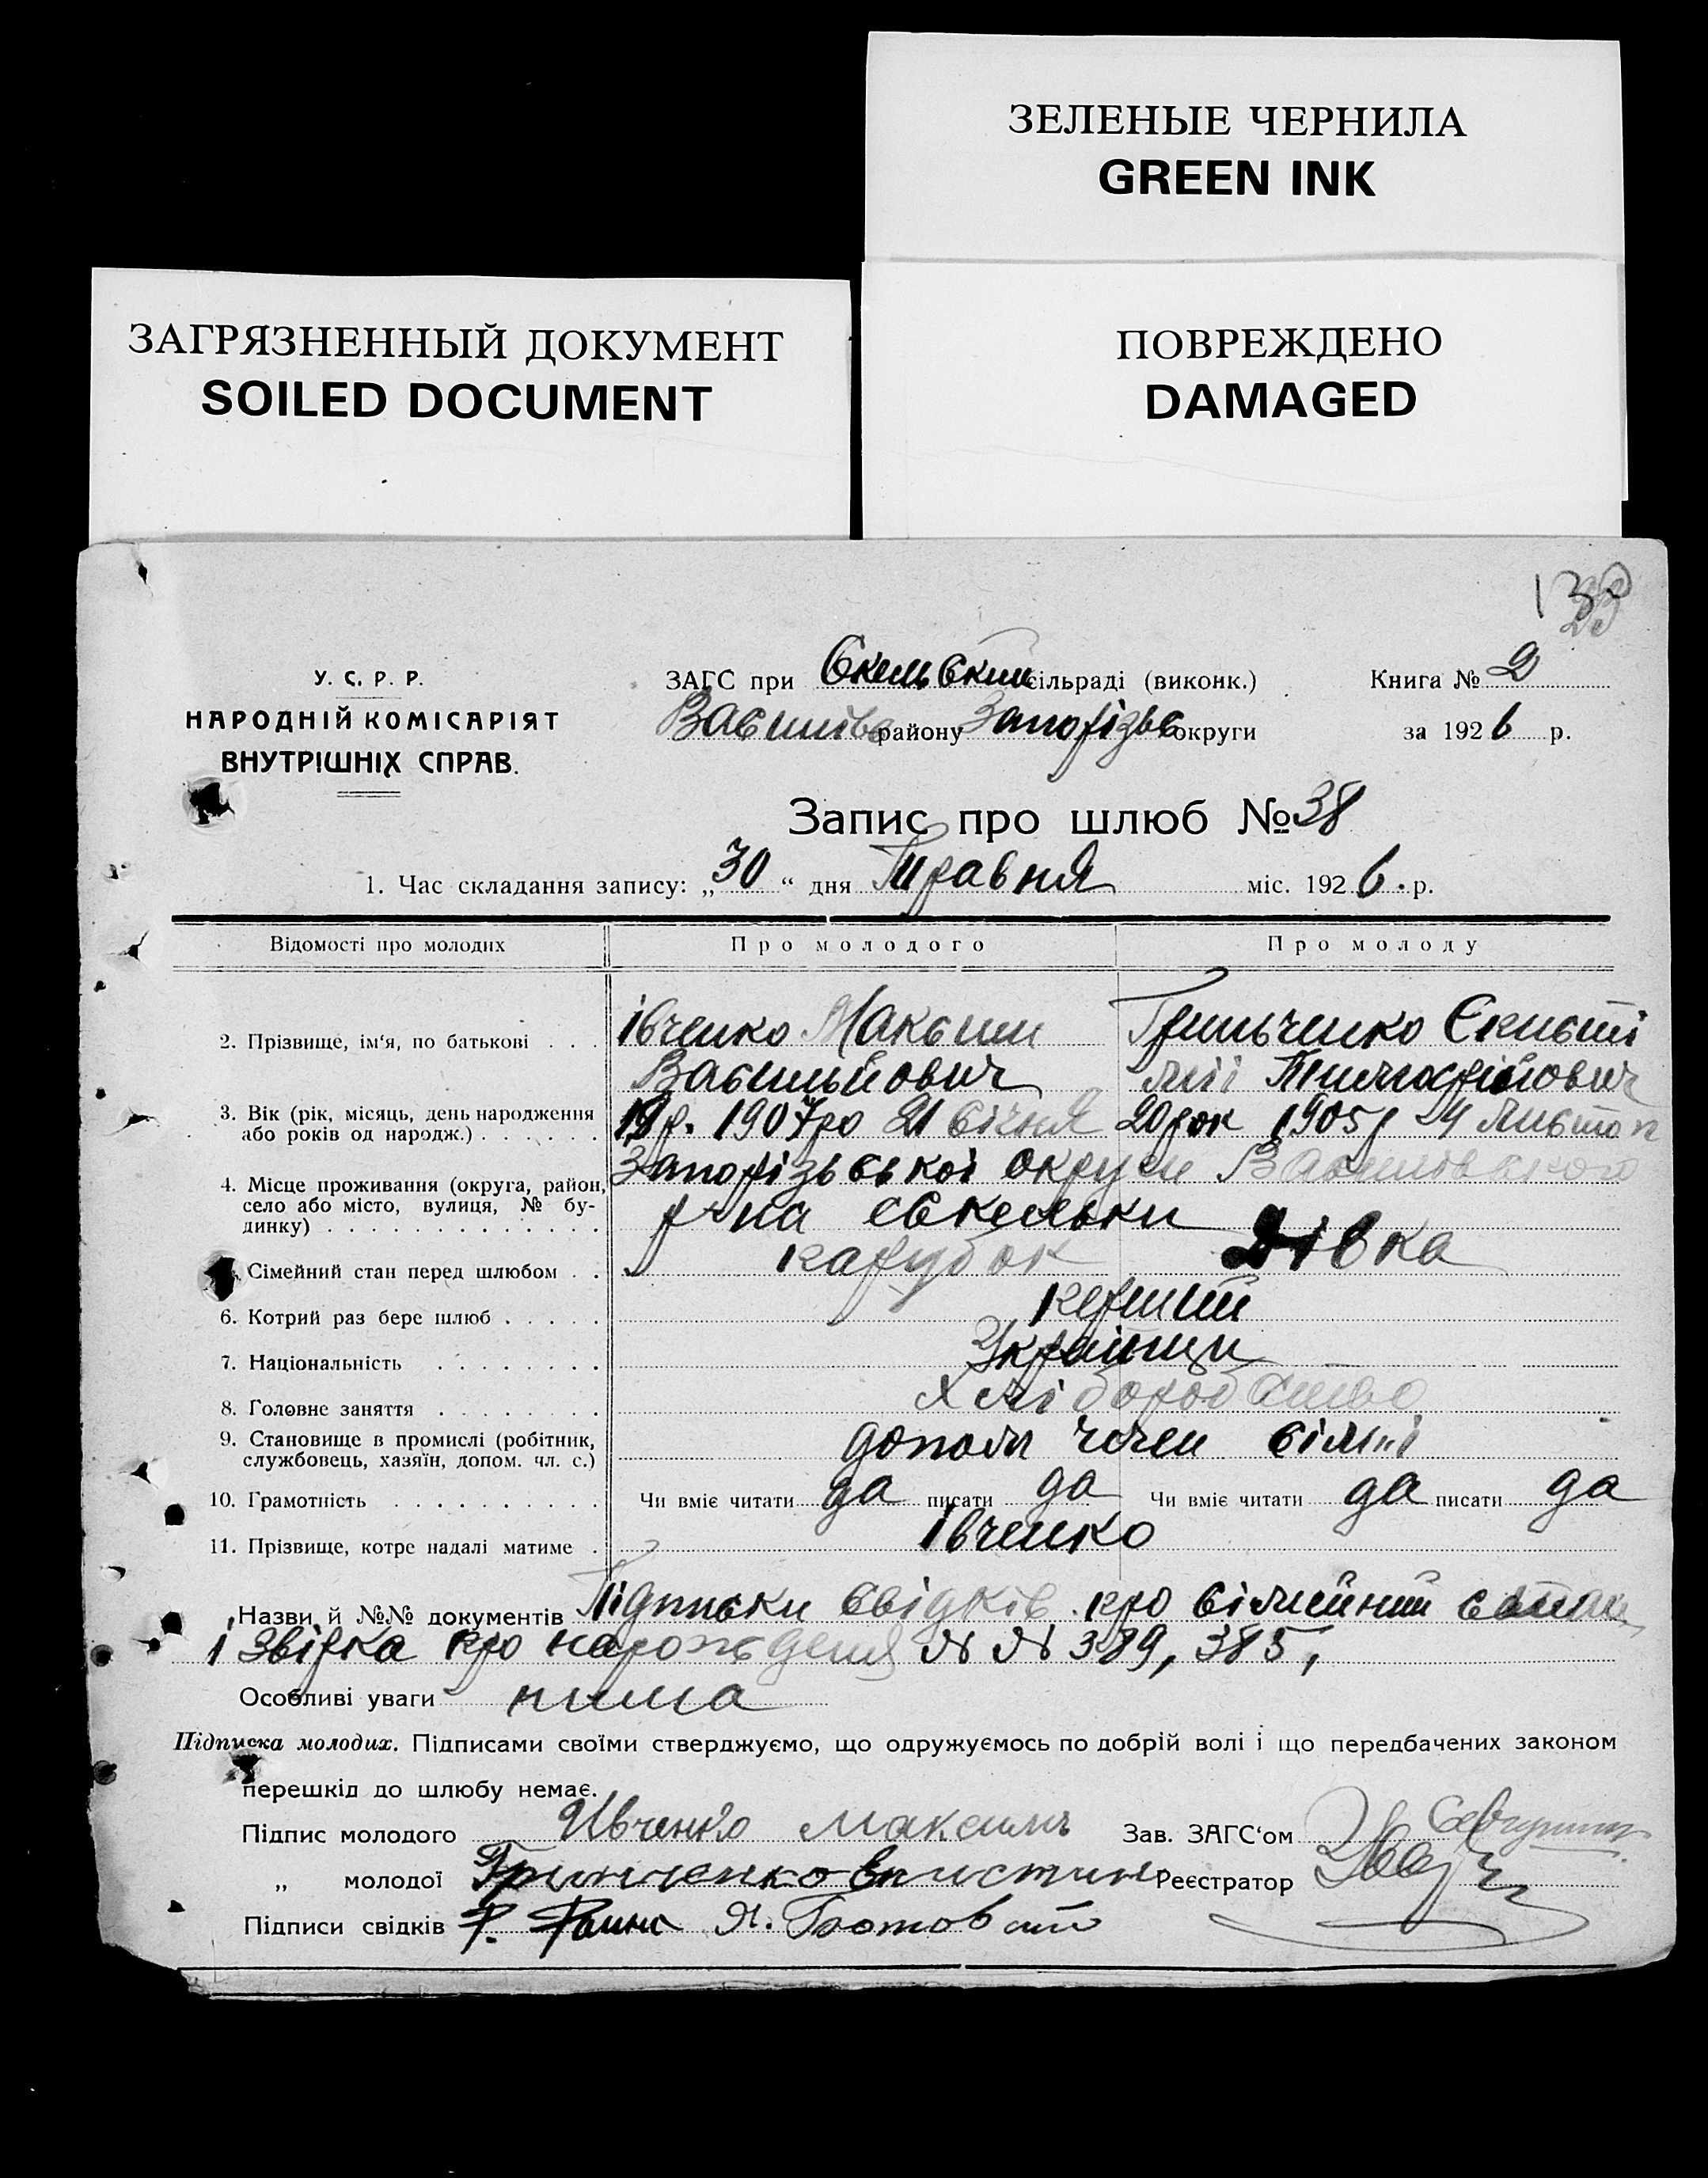 ЗЕЛЕНЫЕ ЧЕРНИЛА
GREEN INK
ЗАГРЯЗНЕННЫЙ ДОКУМЕНТ
SOILED DOCUMENT
ПОВРЕЖДЕНО
DAMAGED
У. С. Р. Р.
НАРОДНІЙ КОМІСАРІЯТ
ВНУТРІШНІХ СПРАВ.
ЗАГС при Скельській сільраді (виконк.)
Василівс району Запорізьс округи
Книга № 2
за 1926 р.
Запис про шлюб № 38
1. Час складання запису: „30“ дня Травня міс. 1926. р.
Відомості про молодих Про молодого Про молоду
2. Прізвище, ім'я, по батькові . . . Івченко Максим Грильченко Єкисті
Васильйович лії Тимохфійович
3. Вік (рік, місяць, день народження 19р. 1907ро 21 січня 20рок 1905р 24 листоп
або років од народж.) . . . . . .
4. Місце проживання (округа, район, Запорізьської округи Василівського
село або місто, вулиця, № бу- р-на с Скельки
динку) . . . . . . . . . . . . .
Сімейний стан перед шлюбом . . парубок Дівка
6. Котрий раз бере шлюб . . . . . перший
7. Національність . . . . . . . . Українци
8. Головне заняття . . . . . . . . Хліборобство
9. Становище в промислі (робітник, допом член сімні
службовець, хазяїн, допом. чл. с.)
10. Грамотність . . . . . . . . . . Чи вміє читати да писати да Чи вміє читати да писати да
11. Прізвище, котре надалі матиме . Івченко
Назви й №№ документів Підписки свідків про сімейний стан
і Звірка про нарождения № № 389, 385,
Особливі уваги нима
Підписка молодих. Підписами своїми стверджуємо, що одружуємось по добрій волі і що передбачених законом
перешкід до шлюбу немає.
Підпис молодого Ивченко Максимъ Зав. ЗАГС'ом
„ молодої Гринченко Реєстратор
Підписи свідків Я.